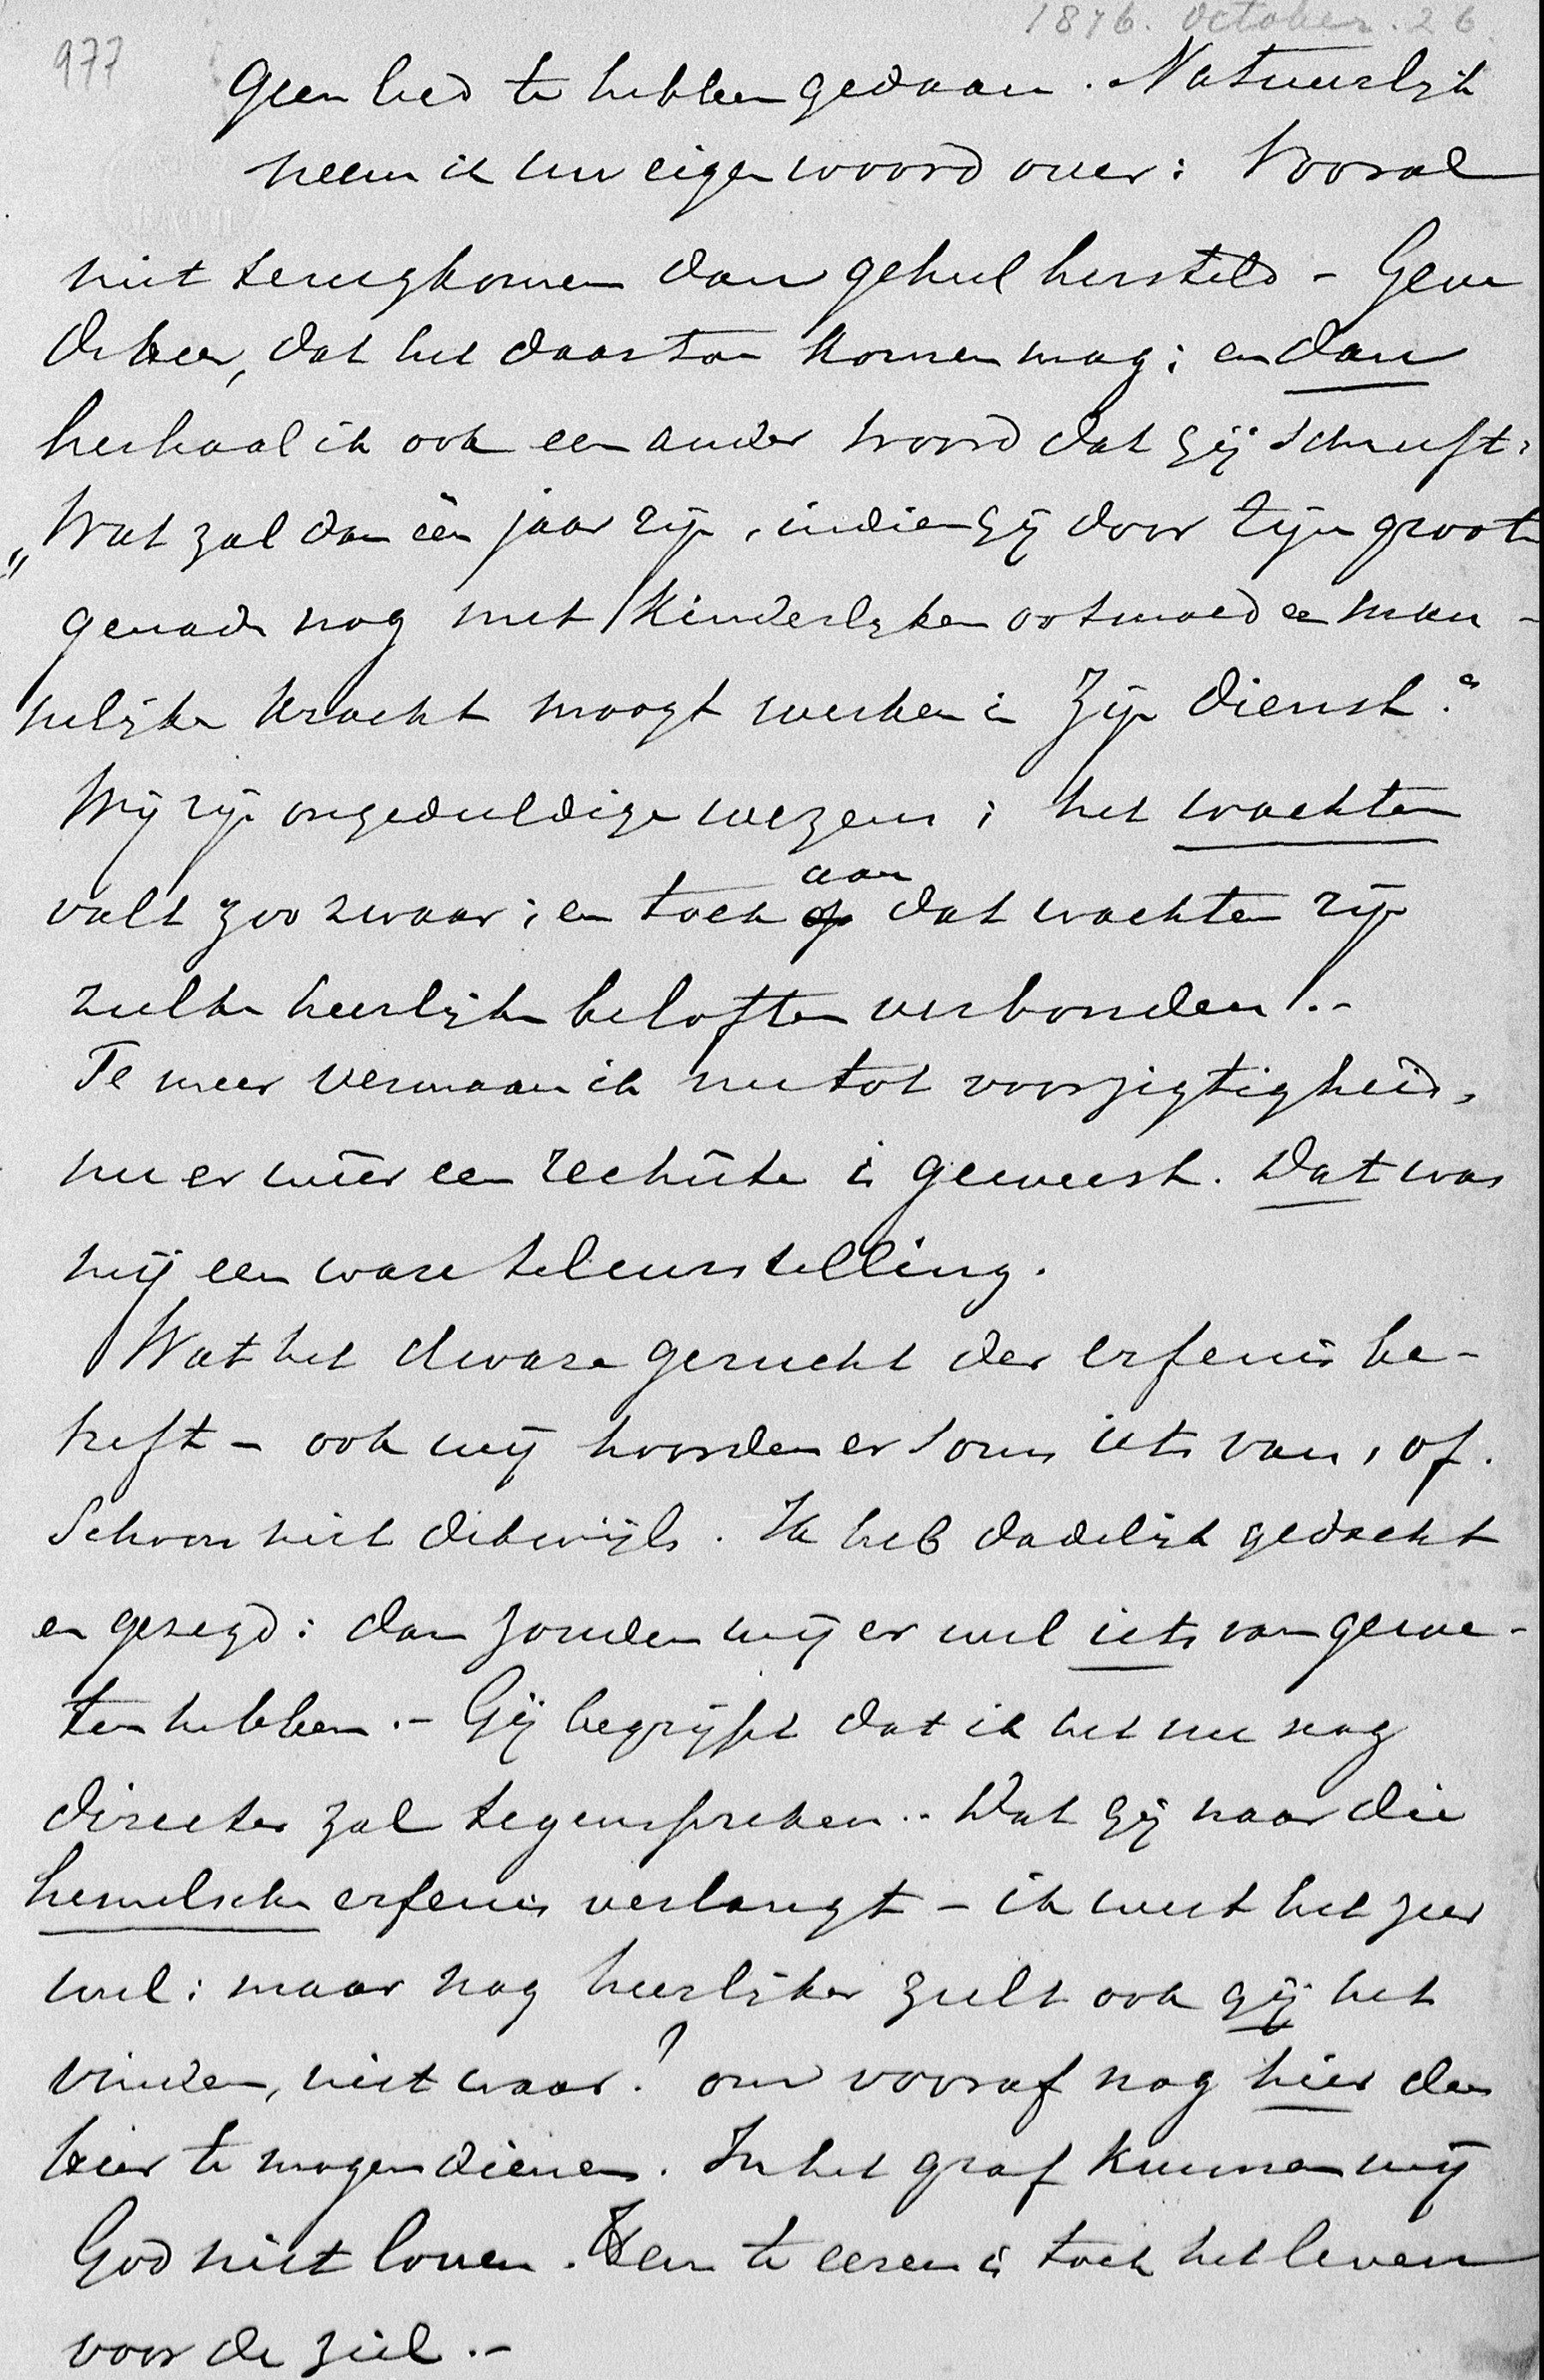 1876. October. 26.
977
Geen leed te hebben gedaan. Natuurlijk
neem ik uw eigen woord over: Vooral
niet terugkomen dan geheel hersteld - Geve
de Heer, dat het daartoe komen mag; en dan
herhaal ik ook een ander woord dat gij schreeft:
„Wat zal dan één jaar zijn, indien gij door Zijn groote
genade nog met kinderlyken ootmoed en man-
nelijke kracht moogt werken in Zijn dienst."
Wij zijn ongeduldige wezens; het wachten
valt zoo zwaar; en toch aan dat wachten zijn
zulke heerlijke beloften verbonden.-
Te meer vermaan ik nu tot voorzigtigheid,
nu er weêr een rechûte is geweest. Dat was
mij een ware teleurstelling.
Wat het dwaze gerucht der erfenis be-
treft - ook wij hoorden er soms iets van, of-
schoon niet dikwijls. Ik heb dadelijk gedacht
en gezegd: dan zouden wij er wel iets van gewe-
ten hebben.- Gij begrijpt dat ik het nu nog
directer zal tegenspreken.- Dat gij naar die
hemelsche erfenis verlangt - ik weet het zeer
wel: maar nog heerlijker zult ook gij het
vinden, niet waar? om vooraf nog hier den
Heer te mogen dienen. In het graf kunnen wij
God niet loven. Hem te eeren is toch het leven
voor de ziel.-